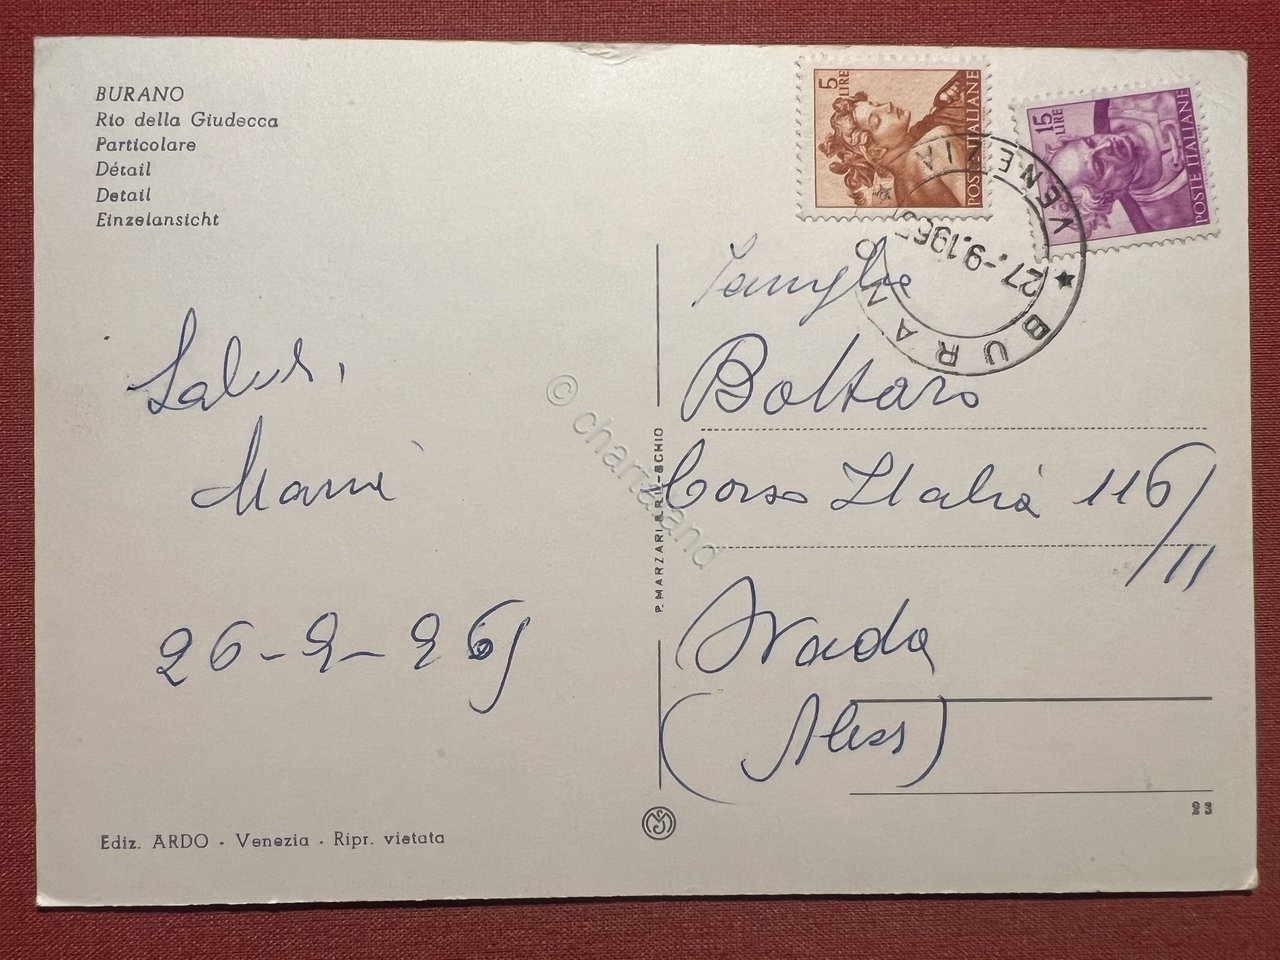 BURANO
Rio della Giudecca
Particolare
Détail
Detail
Einzelansicht
5 LIRE
POSTE ITALIANE
15 LIRE
POSTE ITALIANE
★ BURANO ★ VENEZIA
27.-9.1965
Saluti,
26-9-965
Famiglia
Bottaro
Corso Italia 116/
/11
(Aless)
P. MARZARI S.R.L.-SCHIO
© chartaland
Ediz. ARDO - Venezia - Ripr. vietata
23